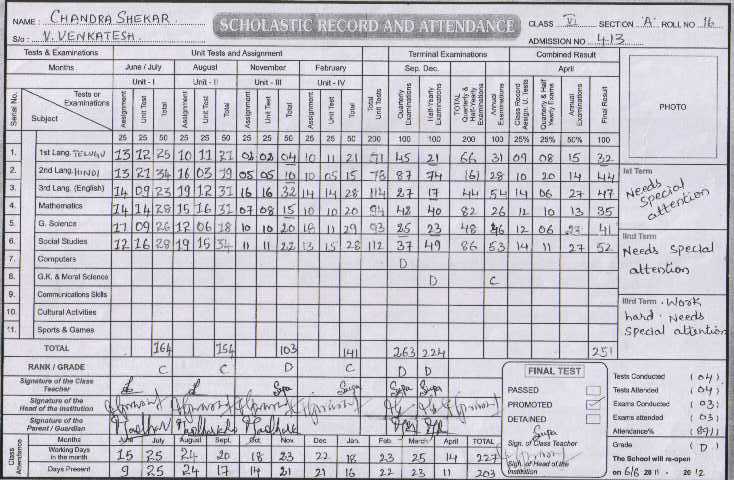 NAME : CHANDRA SHEKAR
S/o : V. VENKATESH.
SCHOLASTIC RECORD AND ATTENDANCE
CLASS VI SECTION 'A' ROLL NO 16
ADMISSION NO 413
Tests & Examinations Unit Tests and Assignment Terminal Examinations Combined Result
Months June / July August November February Sep. Dec. April
Unit - I Unit - II Unit - III Unit - IV
Serial No. Tests or Examinations Subject Assignment Unit Test Total Assignment Unit Test Total Assignment Unit Test Total Assignment Unit Test Total Total Unit Tests Quarterly Examinations Half-Yearly Examinations TOTAL Quarterly & Half-Yearly Examinations Annual Examinations Class Record Assign. U. Tests Quarterly & Half Yearly Exams Annual Examinations Final Result
PHOTO
25 25 50 25 25 50 25 25 50 25 25 50 200 100 100 200 100 25% 25% 50% 100
1. 1st Lang. TELUGU 13 12 25 10 11 21 04 10 11 21 71 45 21 66 31 09 08 15 32
2. 2nd Lang. HINDI 13 21 34 16 03 19 05 05 10 10 05 15 78 87 74 161 28 10 20 14 44
3. 3rd Lang. (English) 14 09 23 19 12 31 16 16 32 14 14 28 114 27 17 44 54 14 06 27 47
4. Mathematics 14 14 28 15 16 31 07 08 15 10 10 20 94 42 40 82 26 12 10 13 35
5. G. Science 17 09 26 12 06 18 10 10 20 18 11 29 93 25 23 48 46 12 06 23 41
6. Social Studies 12 16 28 19 15 34 11 11 22 13 15 28 112 37 49 86 53 14 11 27 52
7. Computers D
8. G.K. & Moral Science D C
9. Communications Skills
10. Cultural Activities
11. Sports & Games
TOTAL 164 154 103 141 263 224 251
RANK / GRADE C C D C D D
Ist Term
Needs
Special
attention
IInd Term
Needs Special
attention
IIIrd Term . Work
hard. Needs
Special attention
Signature of the Class Teacher
Signature of the Head of the Institution
Signature of the Parent / Guardian
FINAL TEST
PASSED
PROMOTED
DETAINED
Sign. of Class Teacher
Sign. of Head of the Institution
Tests Conducted (04)
Tests Attended (04)
Exams Conducted (03)
Exams attended (03)
Attendance%
Grade (D)
The School will re-open
on 6/6 2011 - 2012
Class Attendance
Months June July August Sept. Oct. Nov. Dec Jan. Feb. March April TOTAL
Working Days in the month 15 25 24 20 18 23 22 18 23 25 14 227
Days Present 9 25 24 17 14 21 21 16 22 23 11 203